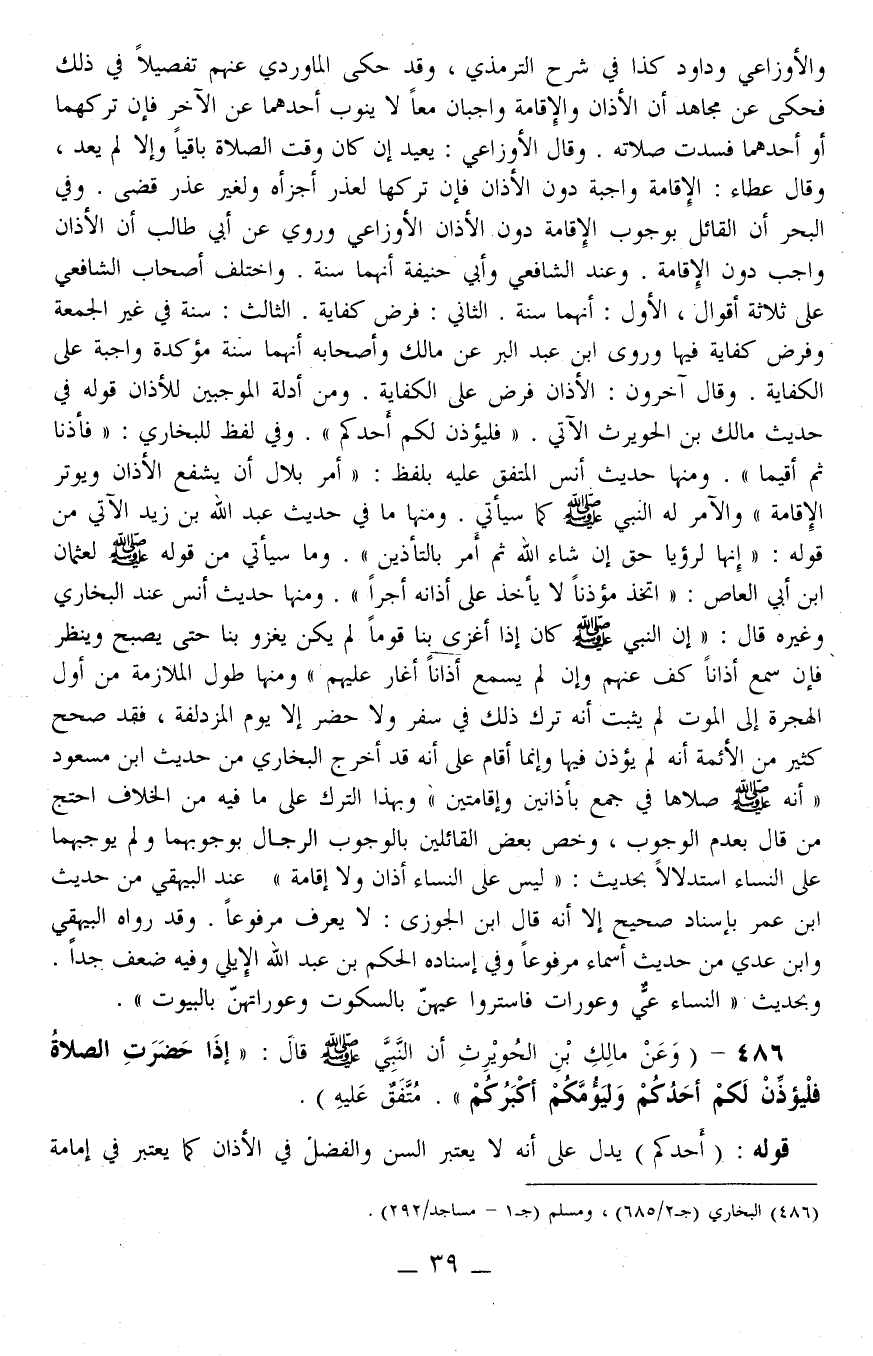 والأوزاعي وداود كذا في شرح الترمذي ، وقد حكى الماوردي عنهم تفصيلاً في ذلك
فحكى عن مجاهد أن الأذان والإقامة واجبان معاً لا ينوب أحدهما عن الآخر فإن تركهما
أو أحدهما فسدت صلاته . وقال الأوزاعي : يعيد إن كان وقت الصلاة باقياً وإلا لم يعد ،
وقال عطاء : الإقامة واجبة دون الأذان فإن تركها لعذر أجزأه ولغير عذر قضى . وفي
البحر أن القائل بوجوب الإقامة دون الأذان الأوزاعي وروي عن أبي طالب أن الأذان
واجب دون الإقامة . وعند الشافعي وأبي حنيفة أنهما سنة . واختلف أصحاب الشافعي
على ثلاثة أقوال ، الأول : أنهما سنة . الثاني : فرض كفاية . الثالث : سنة في غير الجمعة
وفرض كفاية فيها وروى ابن عبد البر عن مالك وأصحابه أنهما سنة مؤكدة واجبة على
الكفاية . وقال آخرون : الأذان فرض على الكفاية . ومن أدلة الموجبين للأذان قوله في
حديث مالك بن الحويرث الآتي . « فليؤذن لكم أحدكم » . وفي لفظ للبخاري : « فأذنا
ثم أقيما » . ومنها حديث أنس المتفق عليه بلفظ : « أمر بلال أن يشفع الأذان ويوتر
الإقامة » والآمر له النبي ﷺ كما سيأتي . ومنها ما في حديث عبد الله بن زيد الآتي من
قوله : « إنها لرؤيا حق إن شاء الله ثم أمر بالتأذين » . وما سيأتي من قوله ﷺ لعثمان
ابن أبي العاص : « اتخذ مؤذناً لا يأخذ على أذانه أجراً » . ومنها حديث أنس عند البخاري
وغيره قال : « إن النبي ﷺ كان إذا أغزى بنا قوماً لم يكن يغزو بنا حتى يصبح وينظر
فإن سمع أذاناً كف عنهم وإن لم يسمع أذاناً أغار عليهم » ومنها طول الملازمة من أول
الهجرة إلى الموت لم يثبت أنه ترك ذلك في سفر ولا حضر إلا يوم المزدلفة ، فقد صحح
كثير من الأئمة أنه لم يؤذن فيها وإنما أقام على أنه قد أخرج البخاري من حديث ابن مسعود
« أنه ﷺ صلاها في جمع بأذانين وإقامتين » وبهذا الترك على ما فيه من الخلاف احتج
من قال بعدم الوجوب ، وخص بعض القائلين بالوجوب الرجال بوجوبهما ولم يوجبهما
على النساء استدلالاً بحديث : « ليس على النساء أذان ولا إقامة » عند البيهقي من حديث
ابن عمر بإسناد صحيح إلا أنه قال ابن الجوزى : لا يعرف مرفوعاً . وقد رواه البيهقي
وابن عدي من حديث أسماء مرفوعاً وفي إسناده الحكم بن عبد الله الإيلي وفيه ضعف جداً .
وبحديث « النساء عيٌّ وعورات فاستروا عيهنّ بالسكوت وعوراتهنّ بالبيوت » .
٤٨٦ – ( وَعَنْ مالِكِ بْنِ الحُويْرِثِ أن النَّبِيَّ ﷺ قالَ : « إذَا حَضَرَتِ الصلاةُ
فلْيؤذِّنْ لَكمْ أحَدُكُمْ وَلْيَؤُمَّكُمْ أكْبَرُكُمْ » . مُتَّفَقٌ عَليهِ ) .
قوله : ( أَحدكم ) يدل على أنه لا يعتبر السن والفضل في الأذان كما يعتبر في إمامة
(٤٨٦) البخاري (جـ٦٨٥/٢) ، ومسلم (جـ١ – مساجد/٢٩٢) .
ــ ٣٩ ــ